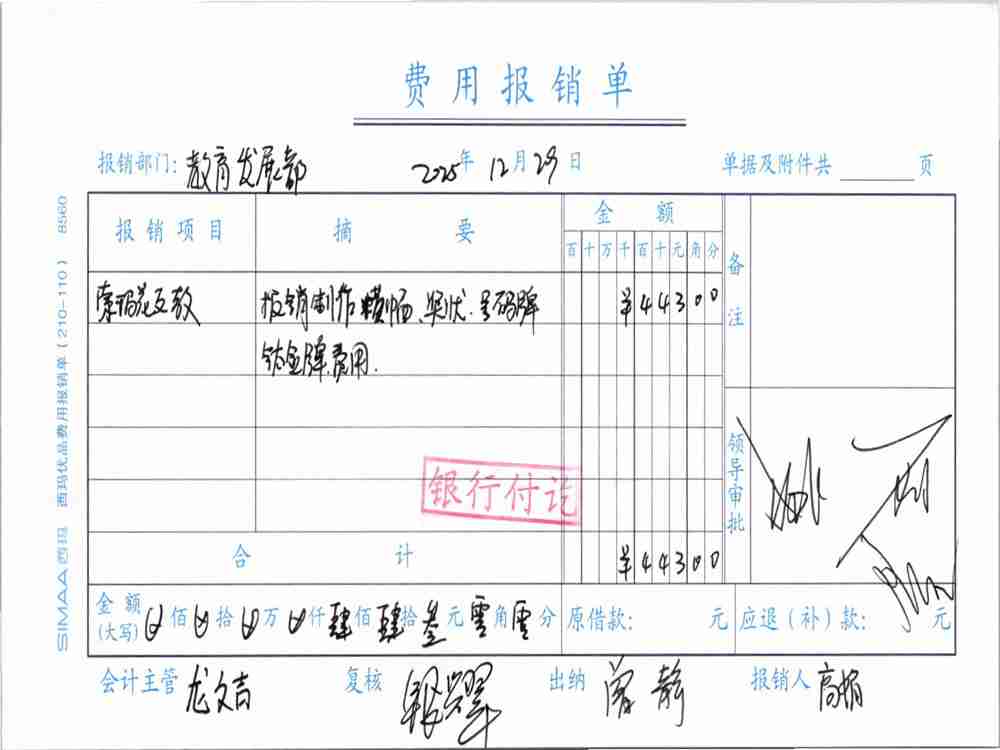 费用报销单
报销部门: 教育发展部 2025年12月29日 单据及附件共 页
报销项目 摘要 金额 备注
百十万千百十元角分
索玛花支教 报销制作横幅、奖状、号码牌 ¥44300
钛金牌费用.
银行付讫
领导审批
合计 ¥44300
金额(大写) 佰 拾 万 仟肆佰肆拾叁元零角零分 原借款: 元 应退(补)款: 元
会计主管 龙文吉 复核 出纳 曾静 报销人 高娟
SIMAA西玛 西玛优品费用报销单(210-110) 8560